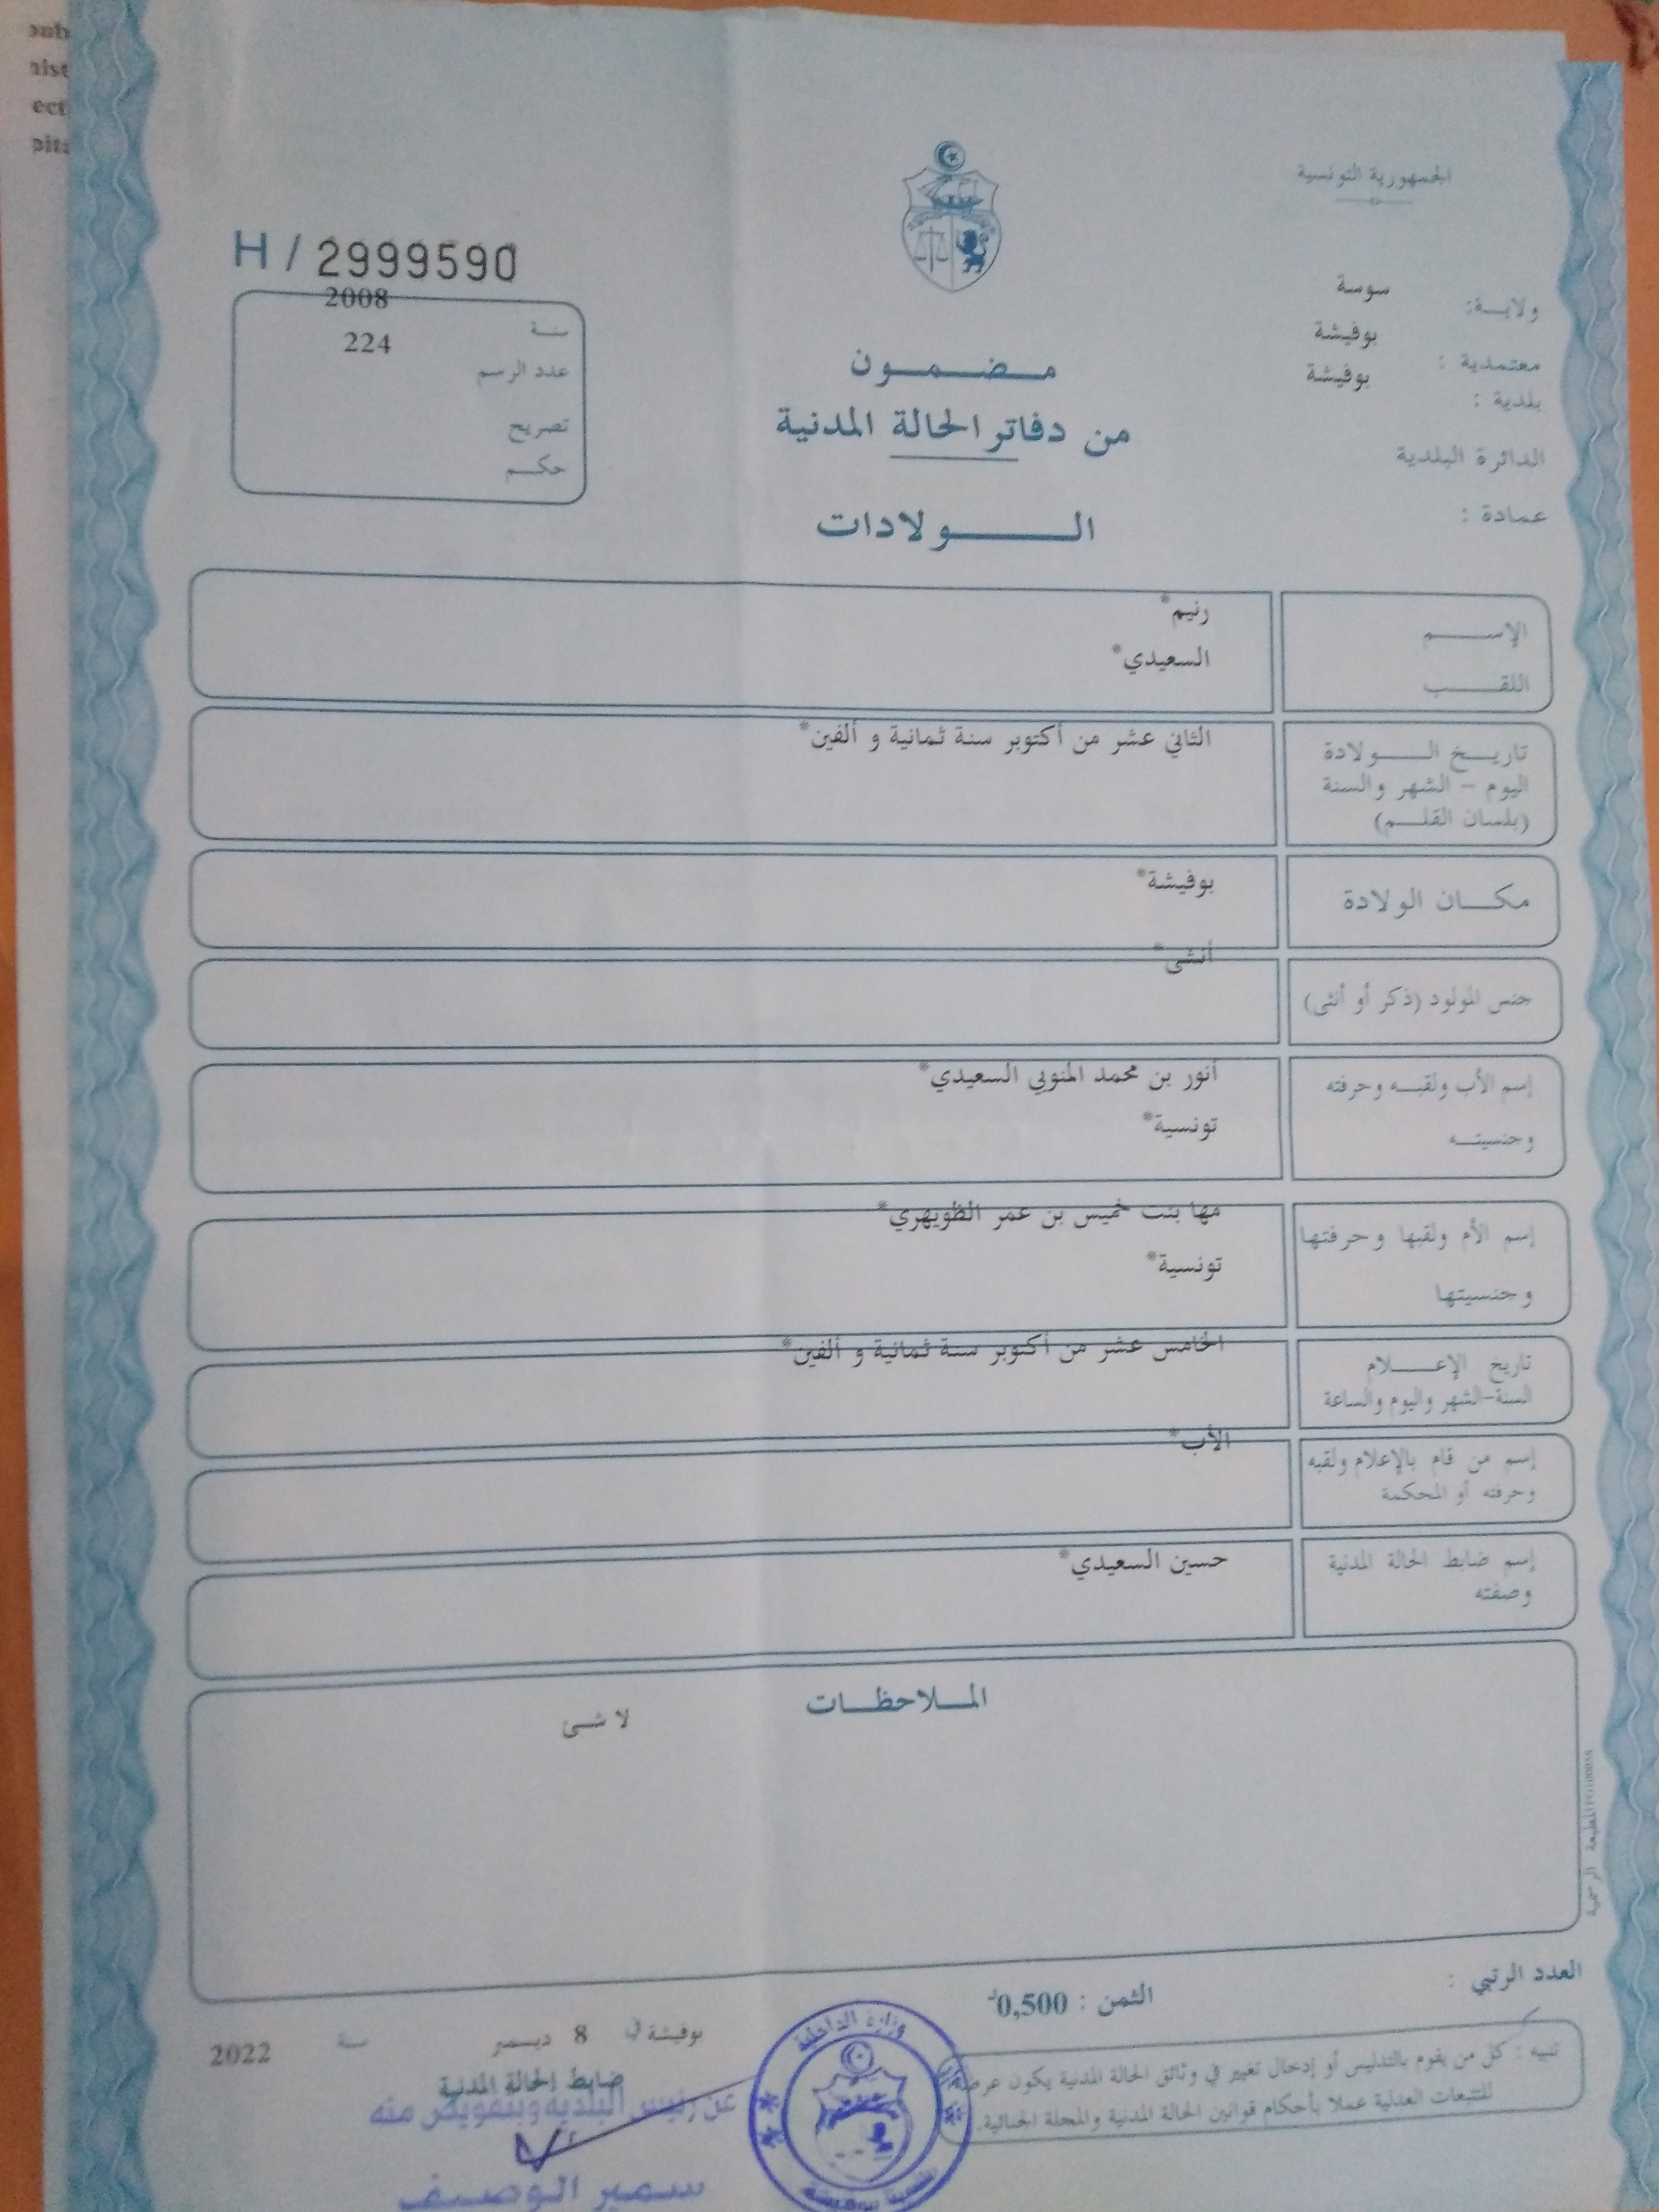 الجمهورية التونسية
ولايـــة: سوسة
معتمدية : بوفيشة
بلدية : بوفيشة
الدائرة البلدية
عمادة :
H / 2999590
سنـة 2008
عدد الرسم 224
تصريح
حكــم
مــضــمــون
من دفاتر الحالة المدنية
الـــــولادات
الإســــم رنيم*
اللقـــب السعيدي*
تاريــخ الـــولادة الثاني عشر من أكتوبر سنة ثمانية و ألفين*
اليوم – الشهر والسنة
(بلسان القلــم)
مكـــان الولادة بوفيشة*
جنس المولود (ذكر أو أنثى) أنثى*
إسم الأب ولقبــه وحرفته أنور بن محمد المنوبي السعيدي*
وجنسيتــه تونسية*
إسم الأم ولقبها وحرفتها مها بنت خميس بن عمر الظويهري*
وجنسيتها تونسية*
تاريخ الإعــــلام الخامس عشر من أكتوبر سنة ثمانية و ألفين*
السنة-الشهر واليوم والساعة
إسم من قام بالإعلام ولقبه الأب*
وحرفته أو المحكمة
إسم ضابط الحالة المدنية حسين السعيدي*
وصفته
المــلاحظــات
لا شى
العدد الرتبي :
الثمن : 0,500د
تنبيه : كل من يقوم بالتدليس أو إدخال تغيير في وثائق الحالة المدنية يكون عرضة
للتتبعات العدلية عملا بأحكام قوانين الحالة المدنية والمجلة الجنائية.
بوفيشة في 8 ديسمبر سنة 2022
ضابط الحالة المدنية
عن رئيس البلدية وبتفويض منه
سمير الوصيف
وزارة الداخلية
المطبعة الرسمية